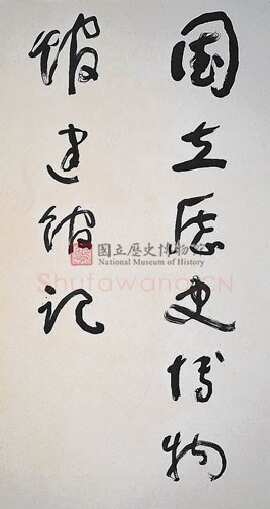 国立歷史博物
館建館記
國立歷史博物館
National Museum of History
Shufawang.CN